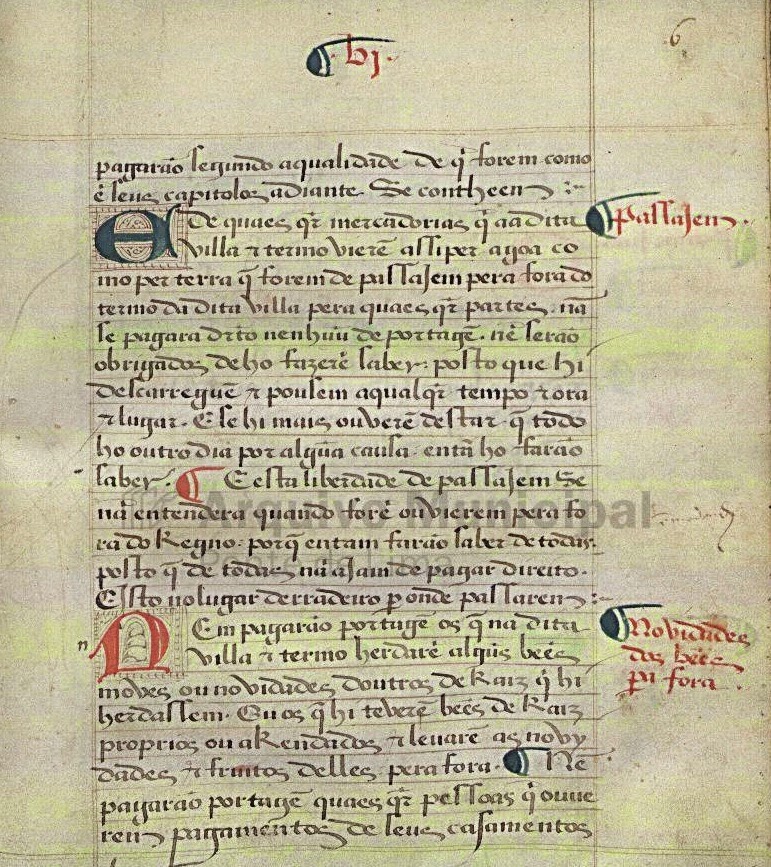 bj
6
pagarão segundo a qualidade de q̃ forem como
ẽ seus capitolos adiante Se contheen
E De quaes qr̃ mercadorias q̃ aa dita
villa ⁊ termo vierẽ assi per agoa co
mo per terra q̃ forem de passajem pera fora do
termo da dita villa pera quaes qr̃ partes . nã
se pagara dr̃to nenhuũ de portagẽ . nẽ serão
obrigados de ho fazerẽ saber . posto que hi
descarreguẽ ⁊ pousem a qualqr̃ tempo ⁊ ora
⁊ lugar . E se hi mais ouverẽ destar . q̃ todo
ho outro dia por algũa causa . entã ho farão
saber . ¶ E esta liberdade de passajem Se
nã entendera quando forẽ ou vierem pera fo
ra do Regno . porq̃ entam farão saber de todas .
posto q̃ de todas nã ajam de pagar direito .
E isto no lugar derradeiro p onde passaren
N Em pagarão portagẽ os q̃ na dita
villa ⁊ termo herdarẽ algũs beẽs
moves ou novidades doutros de Raiz q̃ hi
herdassem . Ou os q̃ hi teverẽ beẽs de Raiz
proprios ou aRendados ⁊ levarẽ as novy
dades ⁊ fruitos delles pera fora . ¶ Nẽ
pagarão portagẽ quaes qr̃ pessoas q̃ ouve
ren pagamentos de seus casamentos
¶ passajen .
n
¶ Novidades
dos beẽs
pa fora .
Arquivo Municipal